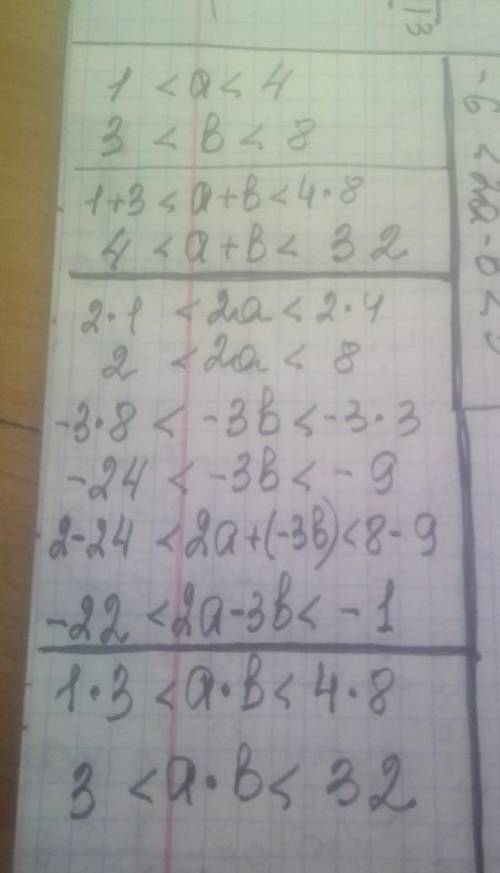 √13
1 < a < 4
3 < b < 8
1+3 < a+b < 4·8
4 < a+b < 32
2·1 < 2a < 2·4
2 < 2a < 8
-3·8 < -3b < -3·3
-24 < -3b < -9
2-24 < 2a+(-3b) < 8-9
-22 < 2a-3b < -1
1·3 < a·b < 4·8
3 < a·b < 32